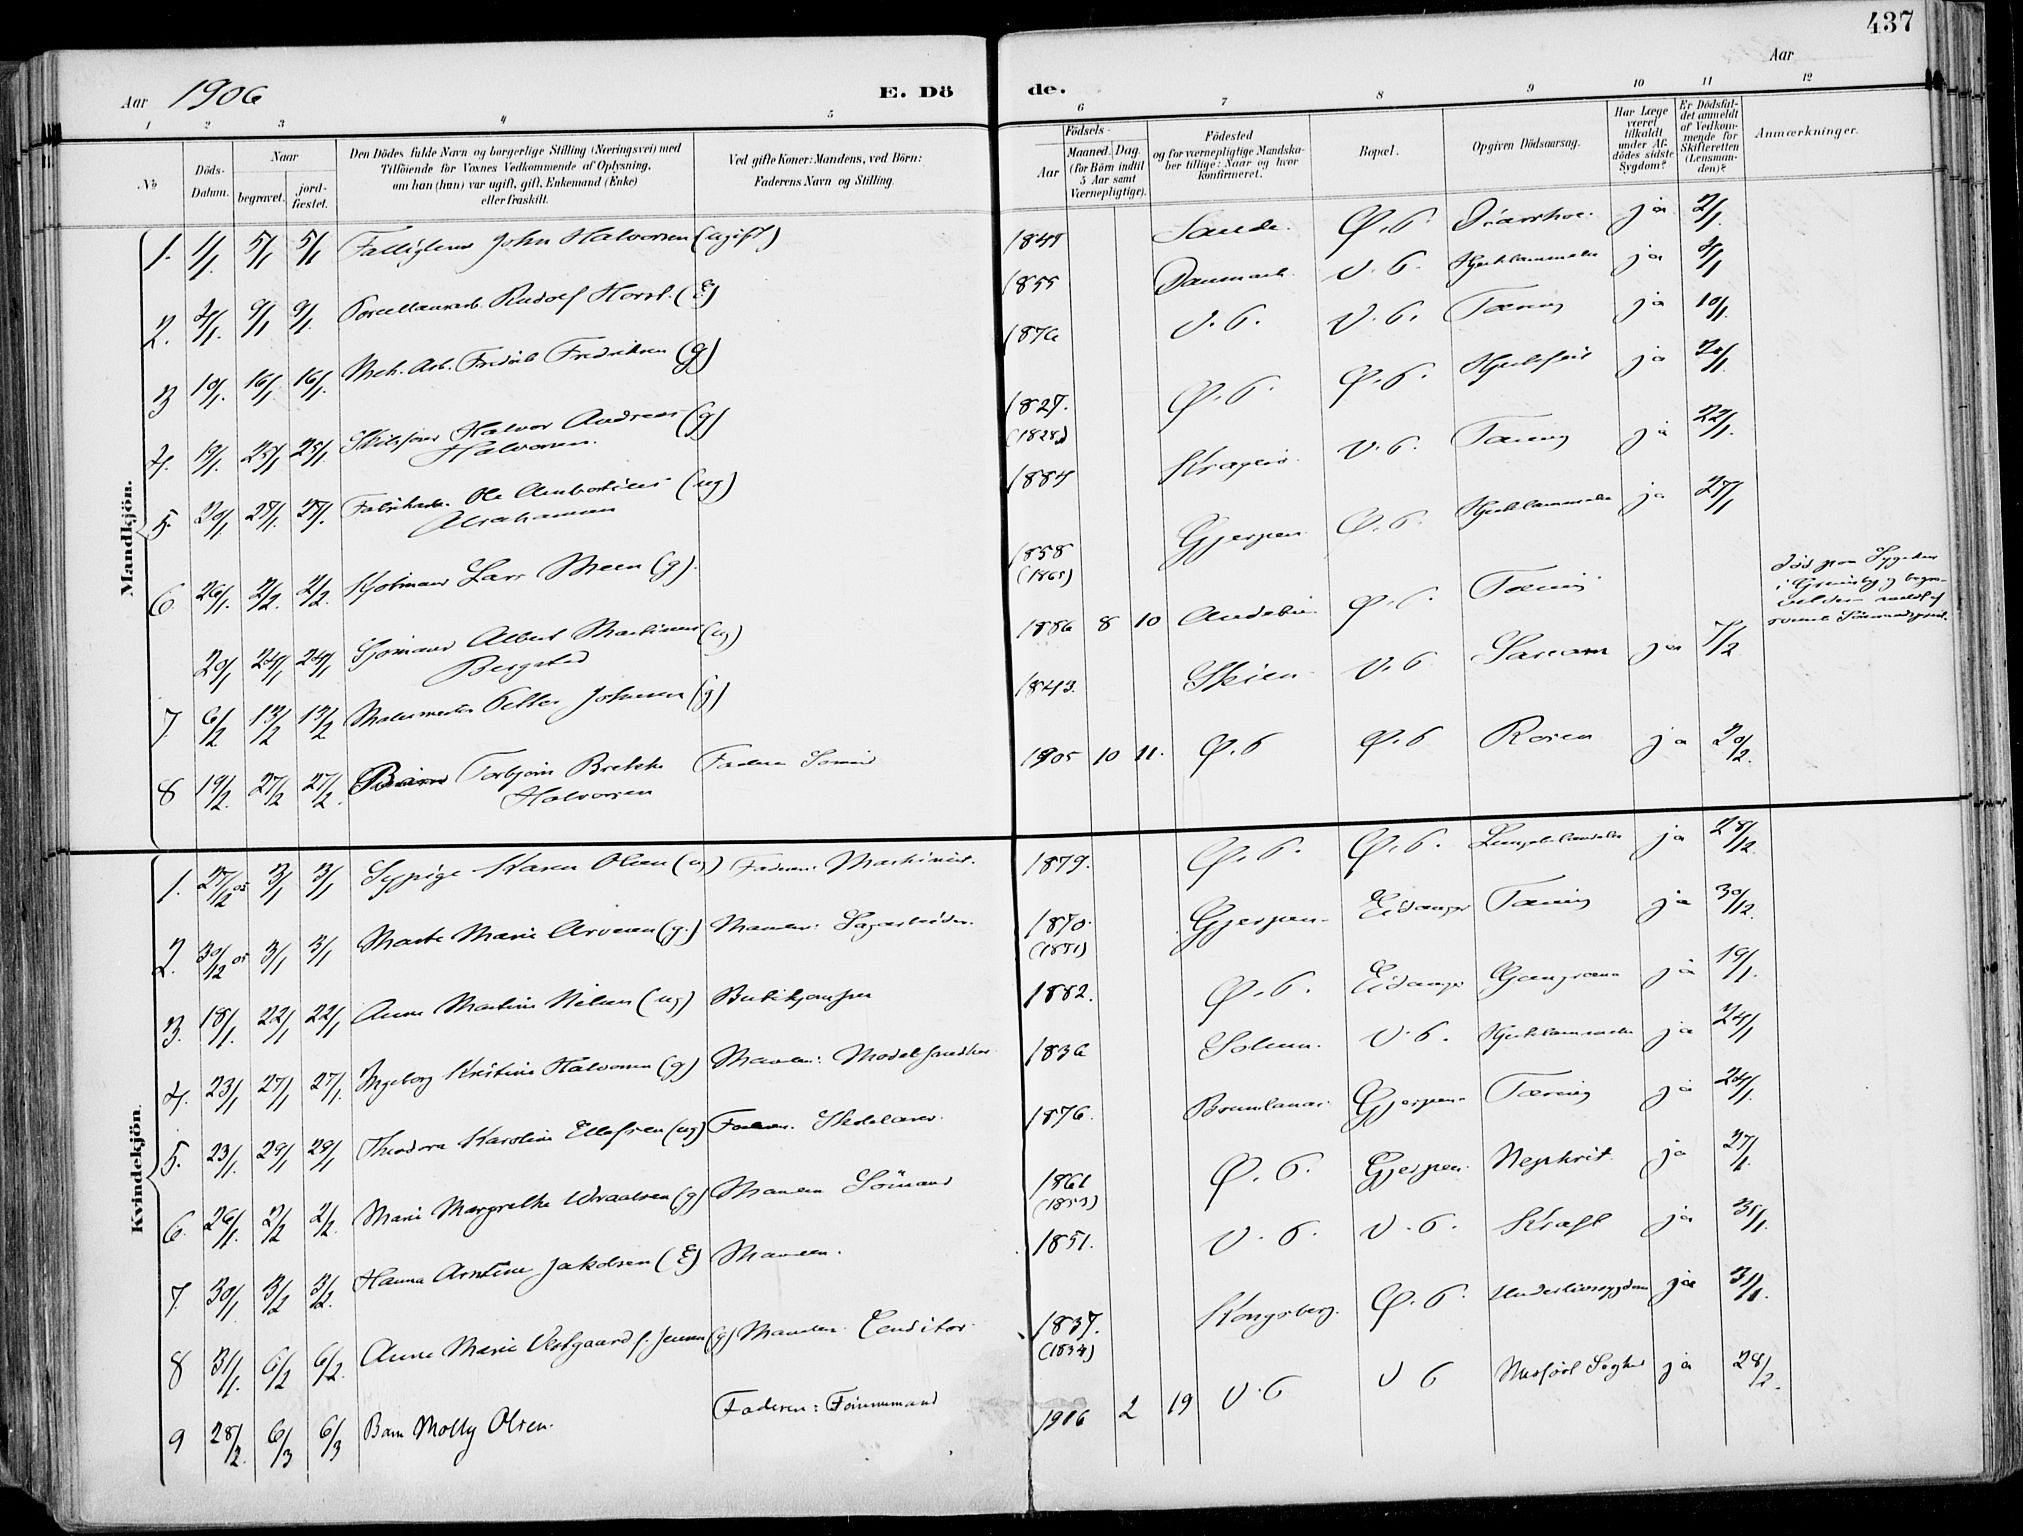 437
Aar 1906
E. Dö de.
Aar
1 2 3 4 5 6 7 8 9 10 11 12
No
Döds-Datum.
Naar
begravet.
jord-fæstet.
Den Dödes fulde Navn og borgerlige Stilling (Næringsvei) med
Tilföiende for Voxnes Vedkommende af Oplysning,
om han (hun) var ugift, gift, Enkemand (Enke)
eller fraskilt.
Ved gifte Koner: Mandens, ved Börn:
Faderens Navn og Stilling.
Födsels-
Aar
Maaned. Dag.
(for Börn indtil
5 Aar samt
Værnepligtige).
Födested
og for værnepligtige Mandska-
ber tillige: Naar og hvor
konfirmeret.
Bopæl.
Opgiven Dödsaarsag.
Har Læge
været
tilkaldt
under Af-
dödes sidste
Sygdom?
Er Dödsfal-
det anmeldt
af Vedkom-
mende for
Skifteretten
(Lensman-
den)?
Anmærkninger.
Mandkjön.
1. 1/1 5/1 5/1 John Halvorsen (ugift) 1845 Sande. Ø.P. Diarrhoe. ja 2/1
2. 4/1 9/1 9/1 Porcellænsarb. Rudolf Horst. (E) 1855 Danmark. V.P. Hjerteslammelse ja 4/1
3 10/1 16/1 16/1 Mek. Arb. Fredrik Fredriksen (g) 1876 V.P. V.P. Tæring ja 10/1
4. 19/1 25/1 25/1 Halvor Andreas (g)
Halvorsen. 1827. (1828) Ø.P. Ø.P. Hjertefeil ja 20/1
5. 20/1 27/1 27/1 Fabrikarb. Ole (ug)
Abrahamsen 1884 Kragerø. V.P. Tæring ja 22/1
6. 26/1 2/2 2/2 Lars Meen (g). 1858 (1865) Gjerpen Ø.P. Hjerteslammelse ja 27/1
20/1 24/1 24/1 Sjømand Albert Martinius (ug)
Bergsted 1886 8 10 Ø.P. Tæring
død paa Sygehus
i Grimsby og
7. 6/2 13/2 13/2 Malermester Petter Johnsen (g) 1843. Skien V.P. Sarcom ja 7/2
8 19/2 27/2 27/2. Torbjørn Brekke
Halvorsen Faderen Sømand 1905 10 11. Ø.P Ø.P Rosen ja 20/2.
Kvindekjön.
1. 27/12 05 3/1 3/1 Sypige Karen Olsen (ug) Faderen: Maskinist. 1879. Ø.P. Ø.P. ja 28/12
2. 30/12 05 3/1 3/1 Marte Marie Arvesen (g.) Manden: Sagarbeider. 1870. (1851) Gjerpen Eidanger Tæring ja 30/12.
3. 18/1 22/1 22/1 Anne Martine Nilsen (ug) 1882. Ø.P. Eidanger Gangræna ja 19/1
4. 23/1 27/1 27/1. Ingeborg Kristine Halvorsen (g) Manden: Modelsnedker 1836 Solum. V.P. Hjerteslammelse ja 24/1
5. 23/1. 29/1 29/1 Theodora Karoline Ellefsen (ug) Faderen. 1876. Brunlanæs Gjerpen Tæring ja 24/1.
6. 26/1. 2/2 2/2. Marie Margrethe (g) Manden Sømand 1861 (1853) Ø.P. Gjerpen Nephrit. ja 27/1.
7. 30/1 3/2 3/2. Hanna Arntine Jakobsen (E) Manden. 1851. V.P. V.P. Kræft ja 31/1.
8 31/1. 6/2 6/2. Anne Marie Vestgaard f. Jensen (g) Manden Conditor. 1837. (1834) Kongsberg. Ø.P. Underlivssygdom ja 31/1.
9 28/2. 6/3 6/3 Barn Molly Olsen. Faderen: Tømmermand 1906 2 19 V.P V P ja 28/2.